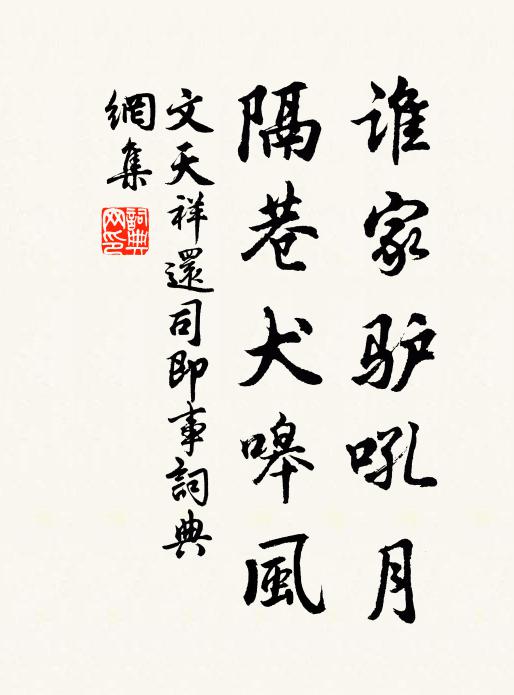 谁家驴吼月
隔巷犬嗥風
文天祥還司即事詞典
網集
詞典網印